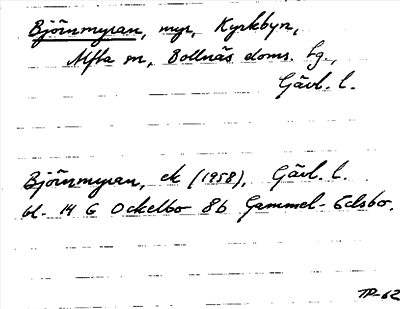 Björnmyran, myr, Kyrkbyn,
Alfta sn, Bollnäs doms. hg.,
Gävl. l.
Björnmyran, ek (1958), Gävl. l.
bl. 14 G Ockelbo 8b Gammel-Edsbo.
TP-62